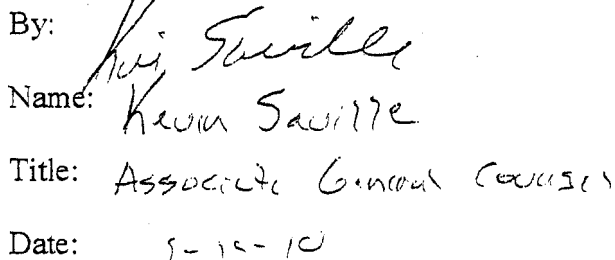 By: Kevin Saville
Name: Kevin Saville
Title: Associate General Counsel
Date: